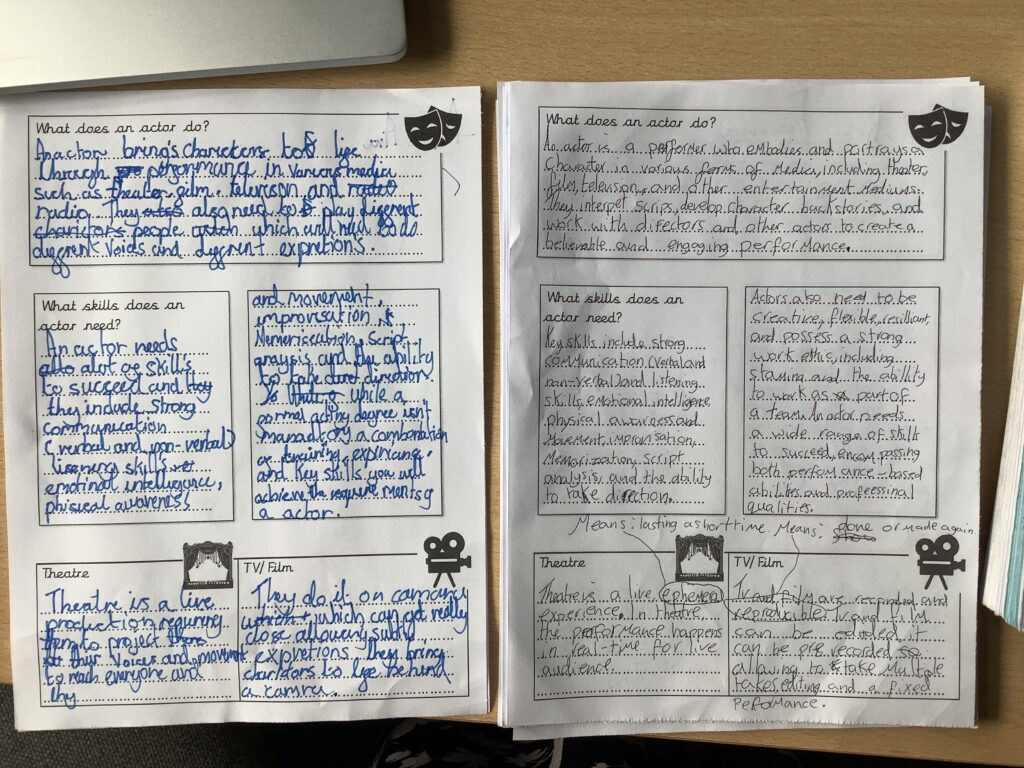 What does an actor do?
An actor brings characters to life
through performing in various media
such as theater film, television and radio
radio. They also need to play different
characters people which will need to do
different voids and different expretions.
What skills does an
actor need?
An actor needs
alot of skills
to succeed and they
they include strong
communication
(verbal and non-verbal)
listening skills
emotinal intelligence,
physical awarness
and movement,
improvisation,
Memerisation, script
analysis and the ability
to take direction
while a
formal acting degree isn't
mandatory a combonation
of training, experiance,
and key skills you will
achieve the requirements of
a actor.
Theatre
Theatre is a live
production requiering
them to project
their voices and movment
to reach everyone and
they
TV/ Film
They do it on camara
which can get really
close allowing subtly
expretions they bring
charictors to life behind
a camra.
What does an actor do?
An actor is a performer who embodies and portrays a
character in various forms of Media, including theater,
film, television, and other entertainment Mediums.
They interpret scrips, develop character backstories, and
work with directors and other actors to create a
believable and engaging performance.
What skills does an
actor need?
Key skills include strong
communication (verbal and
non-verbal) and listening
skills, emotional intelligence,
physical awareness and
Movement, improvisation,
Memorization, script
analysis, and the ability
to take direction.
Actors also need to be
creative, flexible, resilliant,
and possess a strong
work ethic, including
stamina and the ability
to work as part of
a team. An actor needs
a wide range of skills
to succeed, encompassing
both performance-based
abilities and proffesional
qualities.
Means: lasting a short time. Means: done or made again.
Theatre
Theatre is a live ephemeral
experience. In theatre,
the performance happens
in real-time for live
audience.
TV/ Film
TV and film are recorded and
reproducible TV and film
can be edited it
can be pre recorded so
allowing to take Multiple
takes editing and a fixed
Performance.